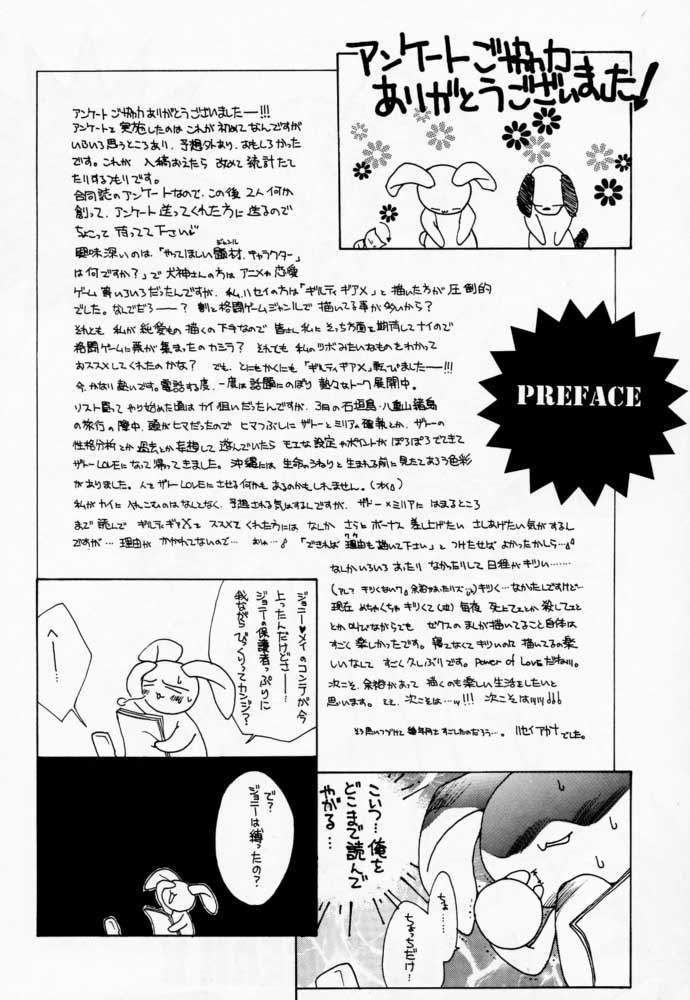 アンケートご協力
ありがとうございました!
アンケートご協力ありがとうございましたー!!!
アンケートを実施したのはこれが初めてなんですが
いろいろ思うところあり、予想外あり、おもしろかった
です。これが入稿おえたら改めて統計たて
たりするもりです。
合同誌のアンケートなので、この後2人何か
創って、アンケート送ってくれた方に送るので
ちょこっと待ってて下さい
興味深いのは、「やってほしい題材、キャラクター
は何ですか?」で犬神さんの方はアニメや恋愛
ゲーム等いろいろだったんですが、私、ハセイの方は「ギルティギアX」と描いた方が圧倒的
でした。なんでだろー?剣と格闘ゲームジャンルで描いてる事が多いから?
それとも私が純愛もの描くの下手なので皆さん私にそっち方面を期待してナイので
格闘ゲームに票が集まったのカシラ?それとも私のツボみたいなものをわかって
おススメしてくれたのかな?でも、とにもかくにも「ギルティギアX」転びましたー!!!
今、かなり熱いです。電話する度、一度は話題にのぼり熱くなトーク展開中。
PREFACE
リスト貰ってやり始めた頃はカイ狙いだったんですが、3月の石垣島・八重山諸島
の旅行の際中、頭がヒマだったのでヒマつぶしにザトーとミリアの確執とか、ザトーの
性格分析とか過去とか妄想して遊んでいたらモエな設定やポイントがぽろぽろでてきて
ザトーLOVEになって帰ってきました。沖縄には生命のうねりと生まれる前に見たであろう色彩
がありました。人をザトーLOVEにさせる何かもあるのかもしれません。
私がカイにやんごとないのはなんとなく、予想される気はするんですが、ザトー×ミリアにはまるところ
まで読んでギルティギアXをススメてくれた方にはなんしか さらにボーナス差上げたい さしあげたい気がするん
ですが…理由がかかれてないので…「できれば理由も描いて下さい」とつけたせばよかったかしら…
なんかいろいろあったりなかったりして日程がキリい……
現在めちゃくちゃキリくて毎夜、死とてェとか殺してェ
とか叫びながらでもゼクスのまんが描いてること自体は
すごく楽しかったです。寝てなくてキリいのに描いてるの楽
しいなんてすごく久しぶりです。Power of Loveだね!!!
次こそ、余裕があって描くのも楽しい生活をしたいと
思います。とと、次こそは…!!! 次こそは!!!
そう思いつづけて幾年月をすごしたのだろう…。ハセイアガナでした。
ジョニー♥メイのコンテが今
上ったんだけどさー…
ジョニーの保護者っぷりに
我ながらびっくりってカンジ?
で?
ジョニーは縛ったの?
こいつ…俺を
どこまで読んで
やがる…
ちょ…
ちょっちだけ…